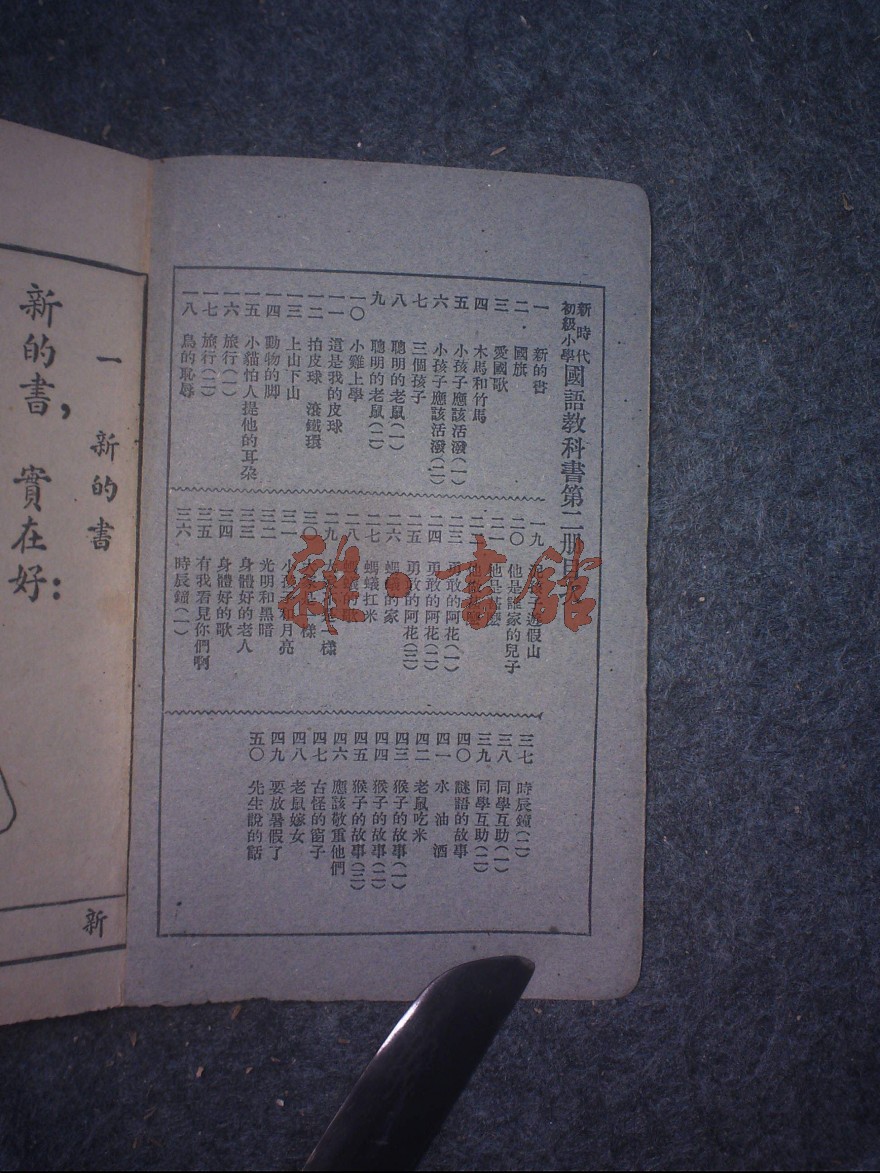 新時代
初級小學
國語教科書第二册目次
一 新的書
二 國旗
三 愛國歌
四 木馬和竹馬
五 小孩子應該活潑(一)
六 小孩子應該活潑(二)
七 三個孩子
八 聰明的老鼠(一)
九 聰明的老鼠(二)
一〇 小雞上學
一一 這是我的皮球
一二 拍皮球 滾鐵環
一三 上山下山
一四 動物的脚
一五 小貓怕人提他的耳朵
一六 旅行(一)
一七 旅行(二)
一八 鳥的恥辱
一九 遊假山
二〇 他是誰家的兒子
二一 他是甚麼
二二
二三 勇敢的阿花(一)
二四 勇敢的阿花(二)
二五 勇敢的阿花(三)
二六 螞蟻的家
二七 螞蟻扛米
二八 螞蟻的歌
二九 樣
三〇 樣
三一 小孩子和月亮
三二 光明和黑暗
三三 身體好的老人
三四 身體好的歌
三五 有我看見你們啊
三六 時辰鐘(一)
三七 時辰鐘(二)
三八 同學互助(一)
三九 同學互助(二)
四〇 謎語的故事
四一 水 油 酒
四二 老鼠吃米
四三 猴子的故事(一)
四四 猴子的故事(二)
四五 猴子的故事(三)
四六 應該敬重他們
四七 古怪的窗子
四八 老鼠嫁女
四九 要放暑假了
五〇 先生說的話
雜·書館
一 新的書
新的書,實在好:
新